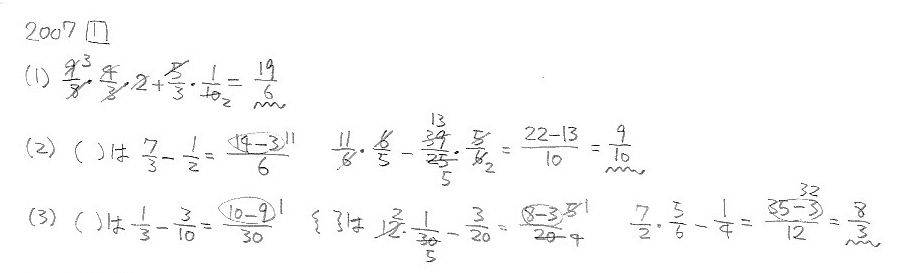 2007 1
(1) 9/8 3 · 4/3 · 2 + 5/3 · 1/10 2 = 19/6
(2) ( )は 7/3 - 1/2 = (14-3)/6 11 11/6 · 6/5 - 39/25 13 5 · 5/6 2 = (22-13)/10 = 9/10
(3) ( )は 1/3 - 3/10 = (10-9)/30 1 { }は 12 2 · 1/30 5 - 3/20 = (8-3)/20 5 1 4 7/2 · 5/6 - 1/4 = (35-3)/12 32 = 8/3